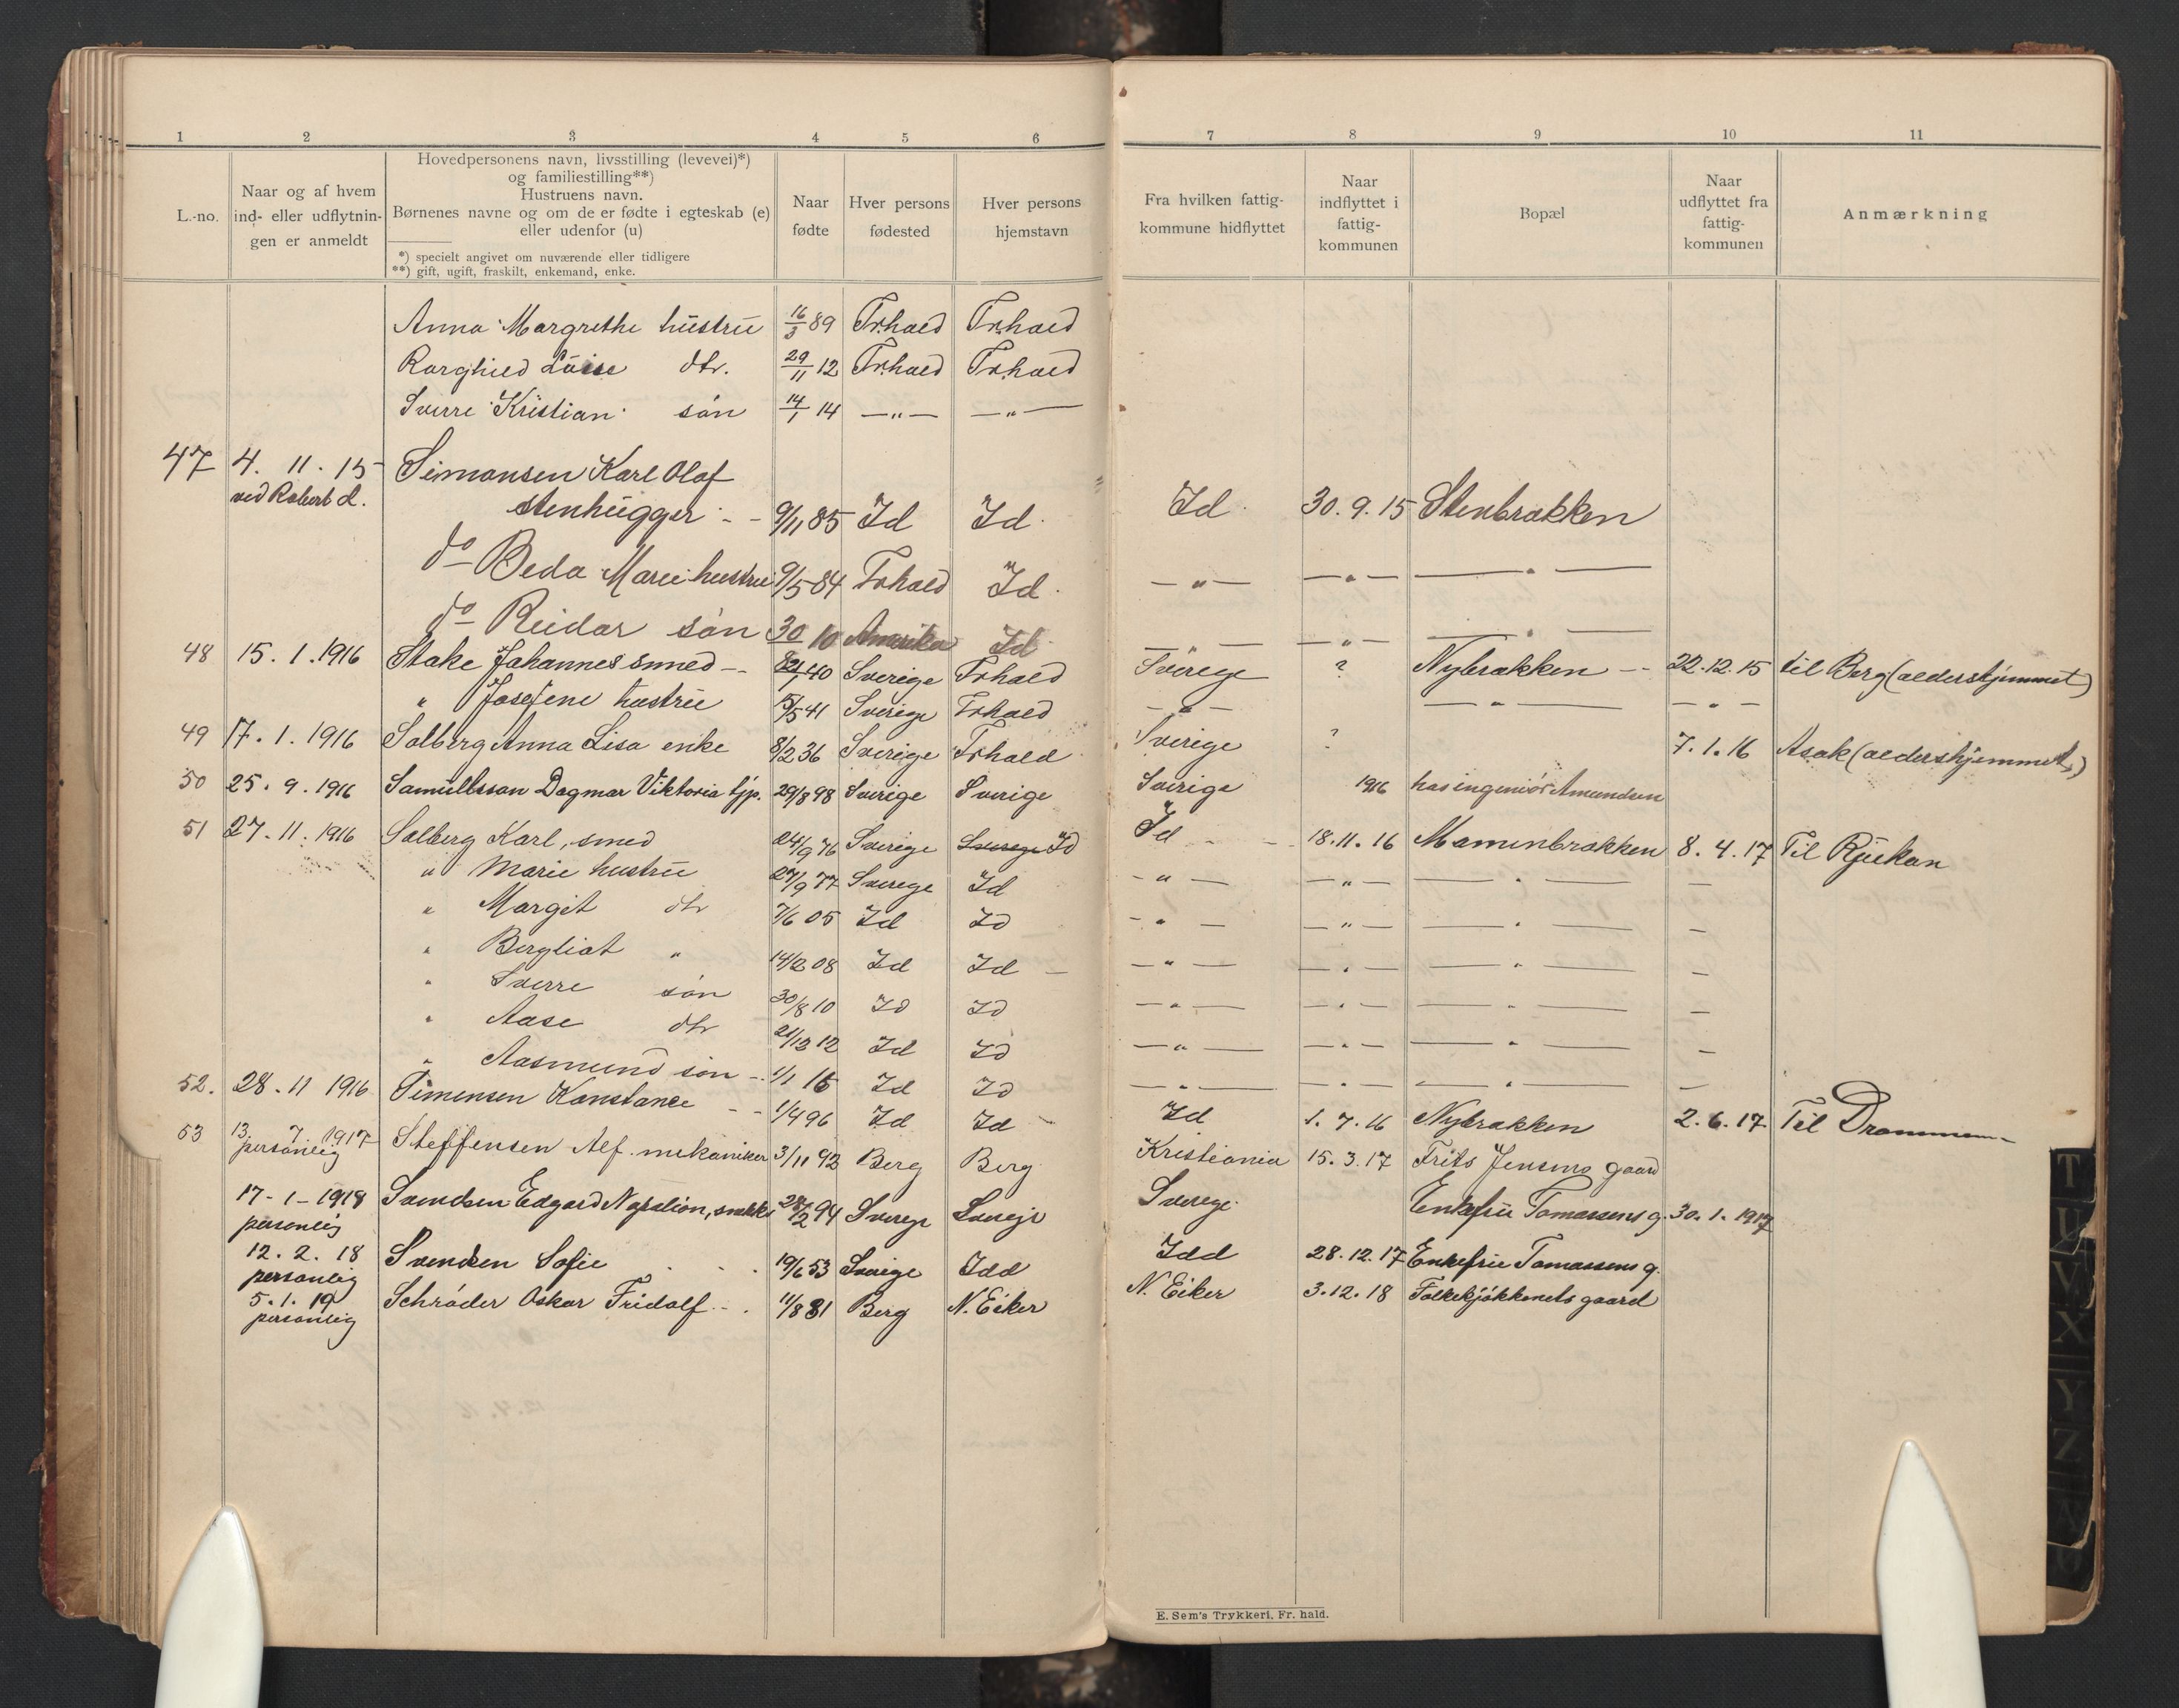 1 2 3 4 5 6 7 8 9 10 11
L.-no.
Naar og af hvem
ind- eller udflytnin-
gen er anmeldt
Hovedpersonens navn, livsstilling (levevei)*)
og familiestilling**)
Hustruens navn.
Børnenes navne og om de er fødte i egteskab (e)
eller udenfor (u)
*) specielt angivet om nuværende eller tidligere
**) gift, ugift, fraskilt, enkemand, enke.
Naar
fødte
Hver persons
fødested
Hver persons
hjemstavn
Fra hvilken fattig-
kommune hidflyttet
Naar
indflyttet i
fattig-
kommunen
Bopæl
Naar
udflyttet fra
fattig-
kommunen
Anmærkning
Anna Margrethe hustru 16/3 89 Frhald Frhald
Louise dtr. 29/11 12 Frhald Frhald
Sverre Kristian søn 14/1 14 —"— —"—
47 4. 11. 15 Simonsen Karl Olaf
ved Robert d. stenhugger - - 9/11 85 Id Id Id 30. 9. 15 Stenbrakken
do Beda Marie hustru 9/5 84 Frhald Id —"— —"— —"—
do Reidar søn 30 10 Amerika Id — — —"— —"—
48 15. 1. 1916 Stake Johannes smed 40 Sverige Frhald Sverige ? Nybrakken 22. 12. 15 til Berg (aldershjemmet)
" Josefine hustru 15/5 41 Sverige Frhald —"— —"— —"—
49 17. 1. 1916 Solberg Anna Lisa enke 8/2 36 Sverige Frhald Sverige ? 7. 1. 16 Asak (aldershjemmet)
50 25. 9. 1916 Samuelsson Dagmar Viktoria tjp. 29/8 98 Sverige Sverige Sverige 1916 hos ingeniør Amundsen
51 27. 11. 1916 Solberg Karl, smed 24/9 76 Sverige Sverige Id Id 18. 11. 16 Momenbrakken 8. 4. 17 Til Rjukan
" Marie hustru 27/9 77 Sverege Id —"— —"— —"— —
" Margit dtr 7/6 05 Id Id —"— —"— —"— —
" Bergliot " 14/2 08 Id Id —"— —"— —"— —
" Sverre søn 30/8 10 Id Id —"— —"— —"— —
" Aase dtr 21/12 12 Id Id —"— —"— —"— —
" Aasmund søn 1/1 15 Id Id —"— —"— —"— —
52. 28. 11 1916 Simensen Konstance - - 1/4 96 Id Id Id 1. 7. 16 Nybrakken 2. 6. 17 Til Drammen
53 13. 7 1917 Steffensen Alf. mekaniker 3/11 92 Berg Berg Kristiania 15. 3. 17 Frits Jensens gaard
personlig
17-1-1918 Svendsen Edgard Napoleon, snekker 94 Sverege Sverige Sverege Enkefru Tomassens g. 30. 1. 1917
personlig
12. 2. 18 Svendsen Sofie 19/6 53 Sverige Idd Idd 28. 12. 17 Enkefrue Tomassens g.
personlig
5. 1. 19 Schrøder Oskar Fridolf 11/8 81 Berg N. Eiker N. Eiker 3. 12. 18 Folkekjøkkenets gaard
personlig
E. Sem's Trykkeri, Fr.hald.
T
U
V
X
Y
Z